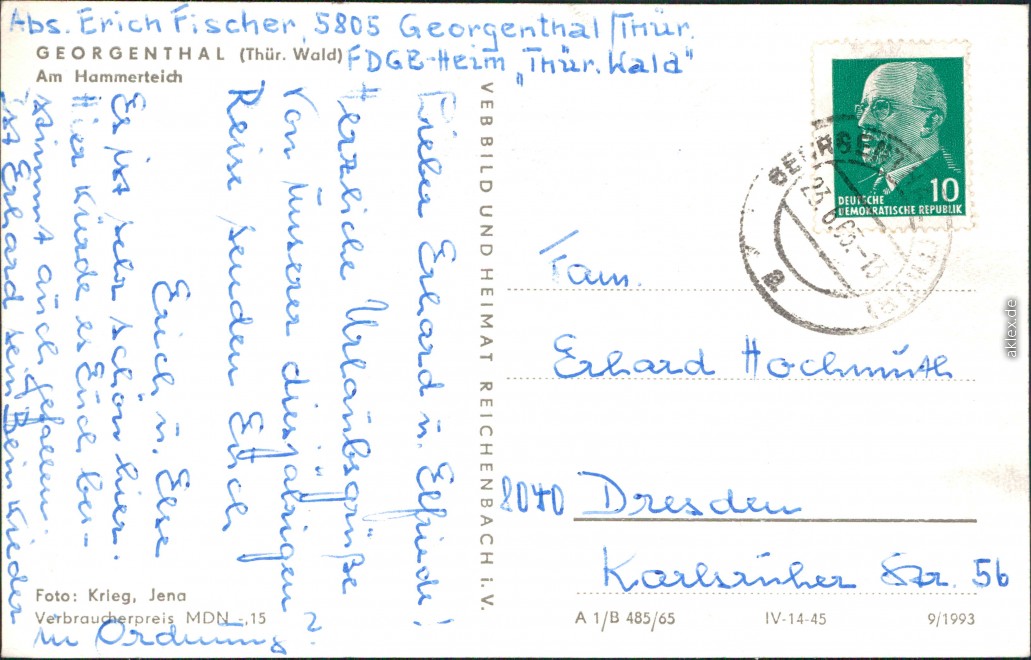 Abs. Erich Fischer, 5805 Georgenthal/Thür.
FDGB-Heim „Thür. Wald"
GEORGENTHAL (Thür. Wald)
Am Hammerteich
Lieber Erhard u. Elfriede!
Herzliche Urlaubsgrüße
von unserer diesjährigen
Reise senden Euch
Erich u. Else
Es ist sehr schön hier.
Hier würde es Euch be-
stimmt auch gefallen.
Ist Erhard sein Bein wieder
in Ordnung?
Foto: Krieg, Jena
Verbraucherpreis MDN -,15
VEB BILD UND HEIMAT REICHENBACH i. V.
DEUTSCHE
DEMOKRATISCHE REPUBLIK
10
Fam.
Erhard Hochmuth
8040 Dresden
Karlsruher Str. 56
A 1/B 485/65
IV-14-45
9/1993
aklex.de